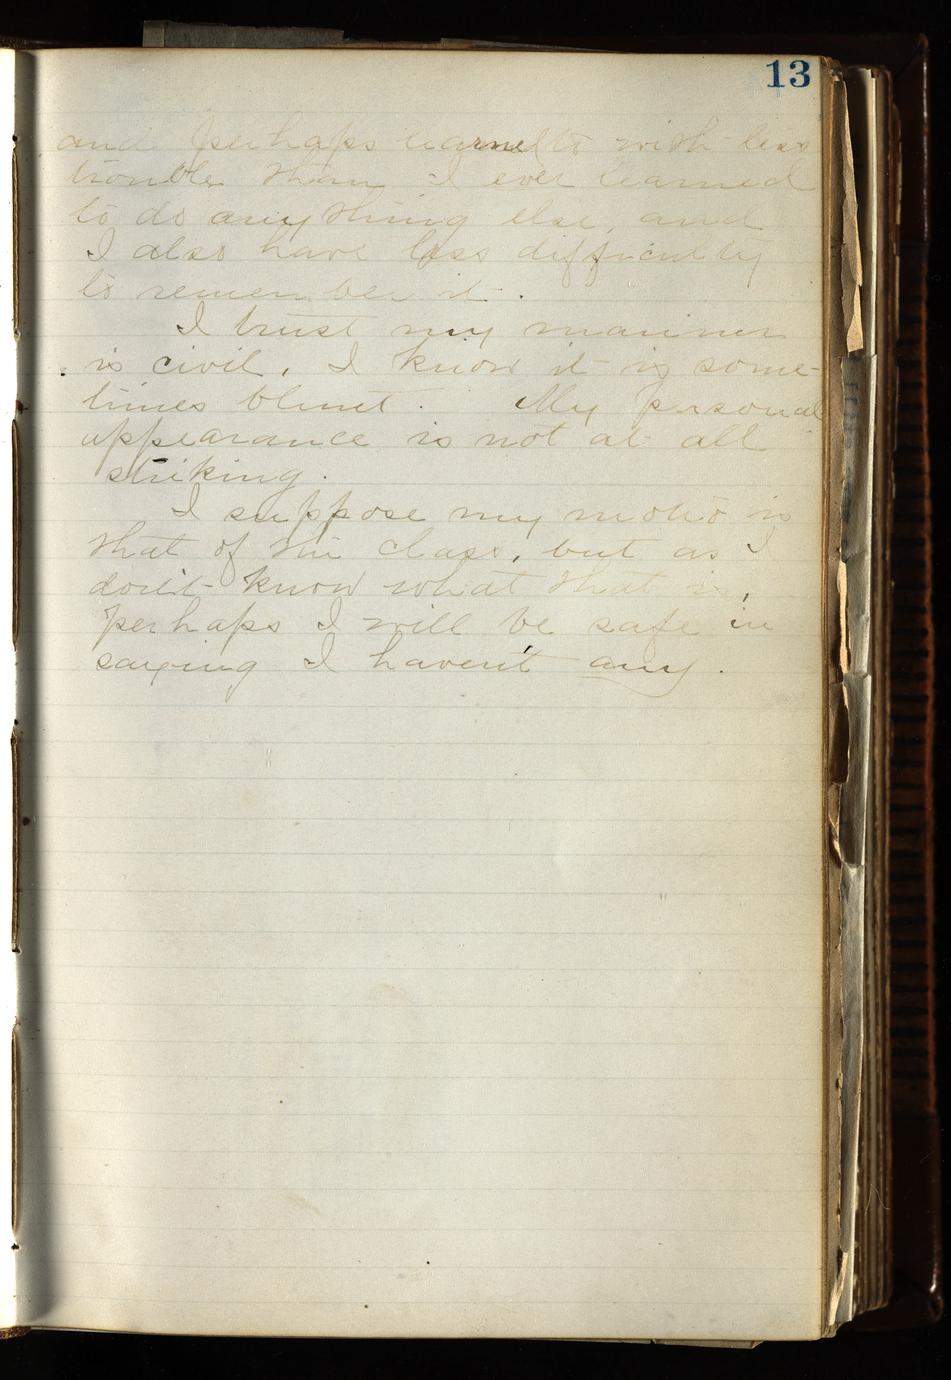 13
and perhaps learned to with less
trouble than I ever learned
to do any thing else, and
I also have less difficulty
to remember it.
I trust my manner
is civil, I know it is some-
times blunt. My personal
appearance is not at all
striking.
I suppose my motto is
that of the class, but as I
don't know what that is,
perhaps I will be safe in
saying I haven't any.